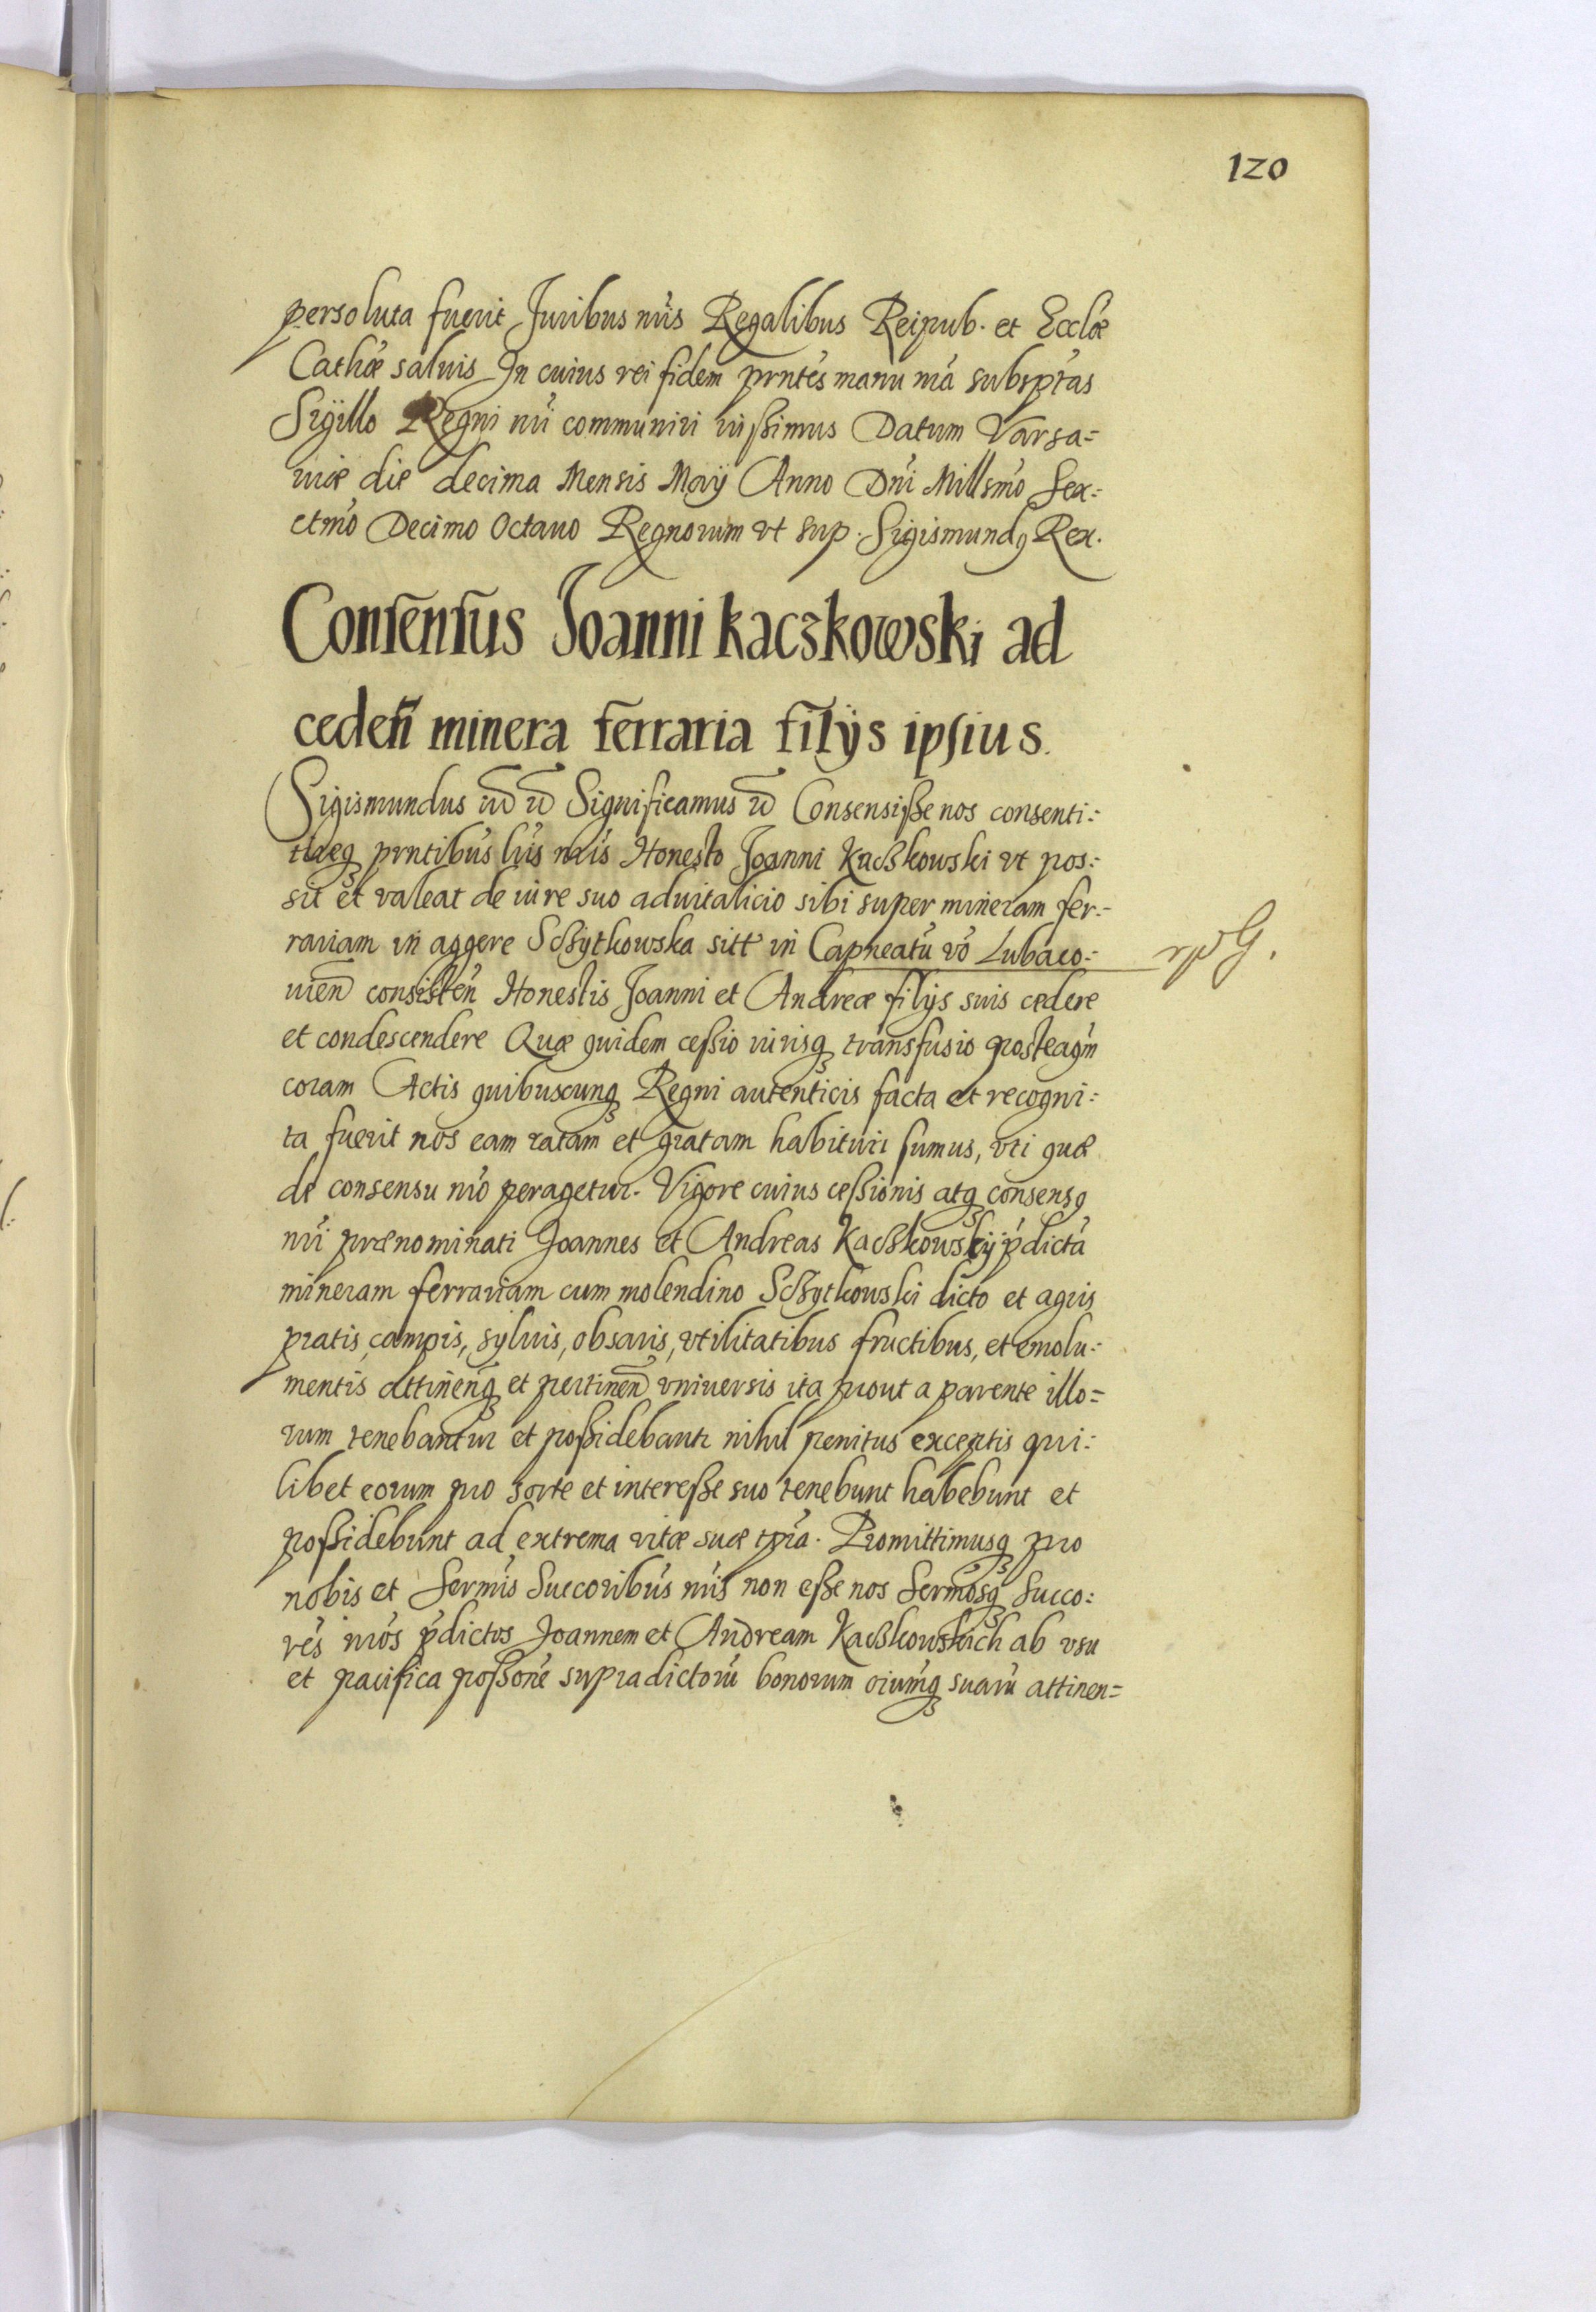 120
persoluta fuerit Juribus nr̃is Regalibus Reipub. et Eccl̃æ
Cathæ saluis In cuius rei fidem prñtes manu nr̃a subsptas
Sigillo Regni nr̃i communiri iussimus Datum Varsa=
uiæ die decima Mensis Maij Anno Dñi Millsmo Sex=
ctmo Decimo Octauo Regnorum vt sup. Sigismundꝯ Rex.
Consensus Joanni Kaczkowski ad
cedeñ minera ferraria filijs ipsius.
Sigismundus Significamus Consensisse nos consenti=
reqꝫ prñtibus lris nr̃is Honesto Joanni Kaczkowski vt pos=
sit et valeat de iure suo aduitalicio sibi super mineram fer=
rariam in aggere Sczytkowska sitt in Capneatũ võ Lubaco=
uieñ consisteñ Honestis Joanni et Andreæ filijs suis cedere
et condescendere Quæ quidem cessio iurisqꝫ transfusio posteaqm̃
coram Actis quibuscunqꝫ Regni autenticis facta et recogni=
ta fuerit nos eam ratam et gratam habituri sumus, vti quæ
de consensu nr̃o peragetur. Vigore cuius cessionis atqꝫ consensꝯ
nr̃i prænominati Joannes et Andreas Kaczkowskij p̃dictã
mineram ferrariam cum molendino Sczytkowski dicto et agris
pratis, campis, syluis, obsaris, vtilitatibus fructibus, et emolu=
mentis attineñqꝫ et pertineñ vniuersis ita prout a parente illo=
rum tenebantur et possidebantr nihil penitus exceptis qui=
libet eorum pro sorte et interesse suo tenebunt habebunt et
possidebunt ad extrema vitæ suæ tp̃ra. Promittimusqꝫ pro
nobis et Sermis Succoribus nr̃is non esse nos Sermosqꝫ Succo=
res nr̃os p̃dictos Joannem et Andream Kaczkowskich ab vsu
et pacifica possone supradictorũ bonorum oiumqꝫ suarũ attinen=